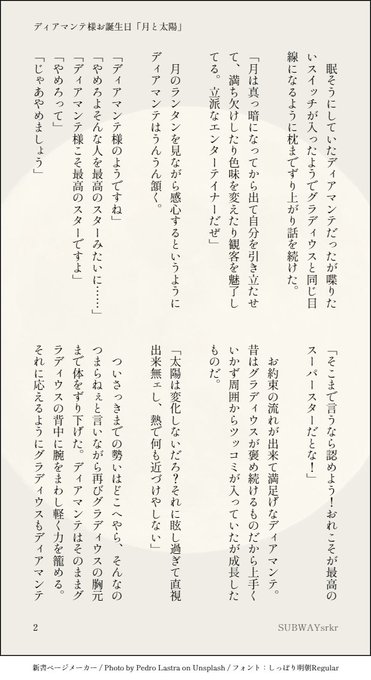 ディアマンテ様お誕生日「月と太陽」
眠そうにしていたディアマンテだったが喋りた
いスイッチが入ったようでグラディウスと同じ目
線になるように枕までずり上がり話を続けた。
「月は真っ暗になってから出て自分を引き立たせ
て、満ち欠けしたり色味を変えたり観客を魅了し
てる。立派なエンターテイナーだぜ」
月のランタンを見ながら感心するというように
ディアマンテはうんうん頷く。
「ディアマンテ様のようですね」
「やめろよそんな人を最高のスターみたいに……」
「ディアマンテ様こそ最高のスターですよ」
「やめろって」
「じゃあやめましょう」
「そこまで言うなら認めよう!おれこそが最高の
スーパースターだとな!」
お約束の流れが出来て満足げなディアマンテ。
昔はグラディウスが褒め続けるものだから上手く
いかず周囲からツッコミが入っていたが成長した
ものだ。
「太陽は変化しないだろ?それに眩し過ぎて直視
出来無ェし、熱で何も近づけやしない」
ついさっきまでの勢いはどこへやら、そんなの
つまらねぇと言いながら再びグラディウスの胸元
まで体をずり下げた。ディアマンテはそのままグ
ラディウスの背中に腕をまわし軽く力を籠める。
それに応えるようにグラディウスもディアマンテ
2
SUBWAYsrkr
新書ページメーカー / Photo by Pedro Lastra on Unsplash / フォント:しっぽり明朝Regular